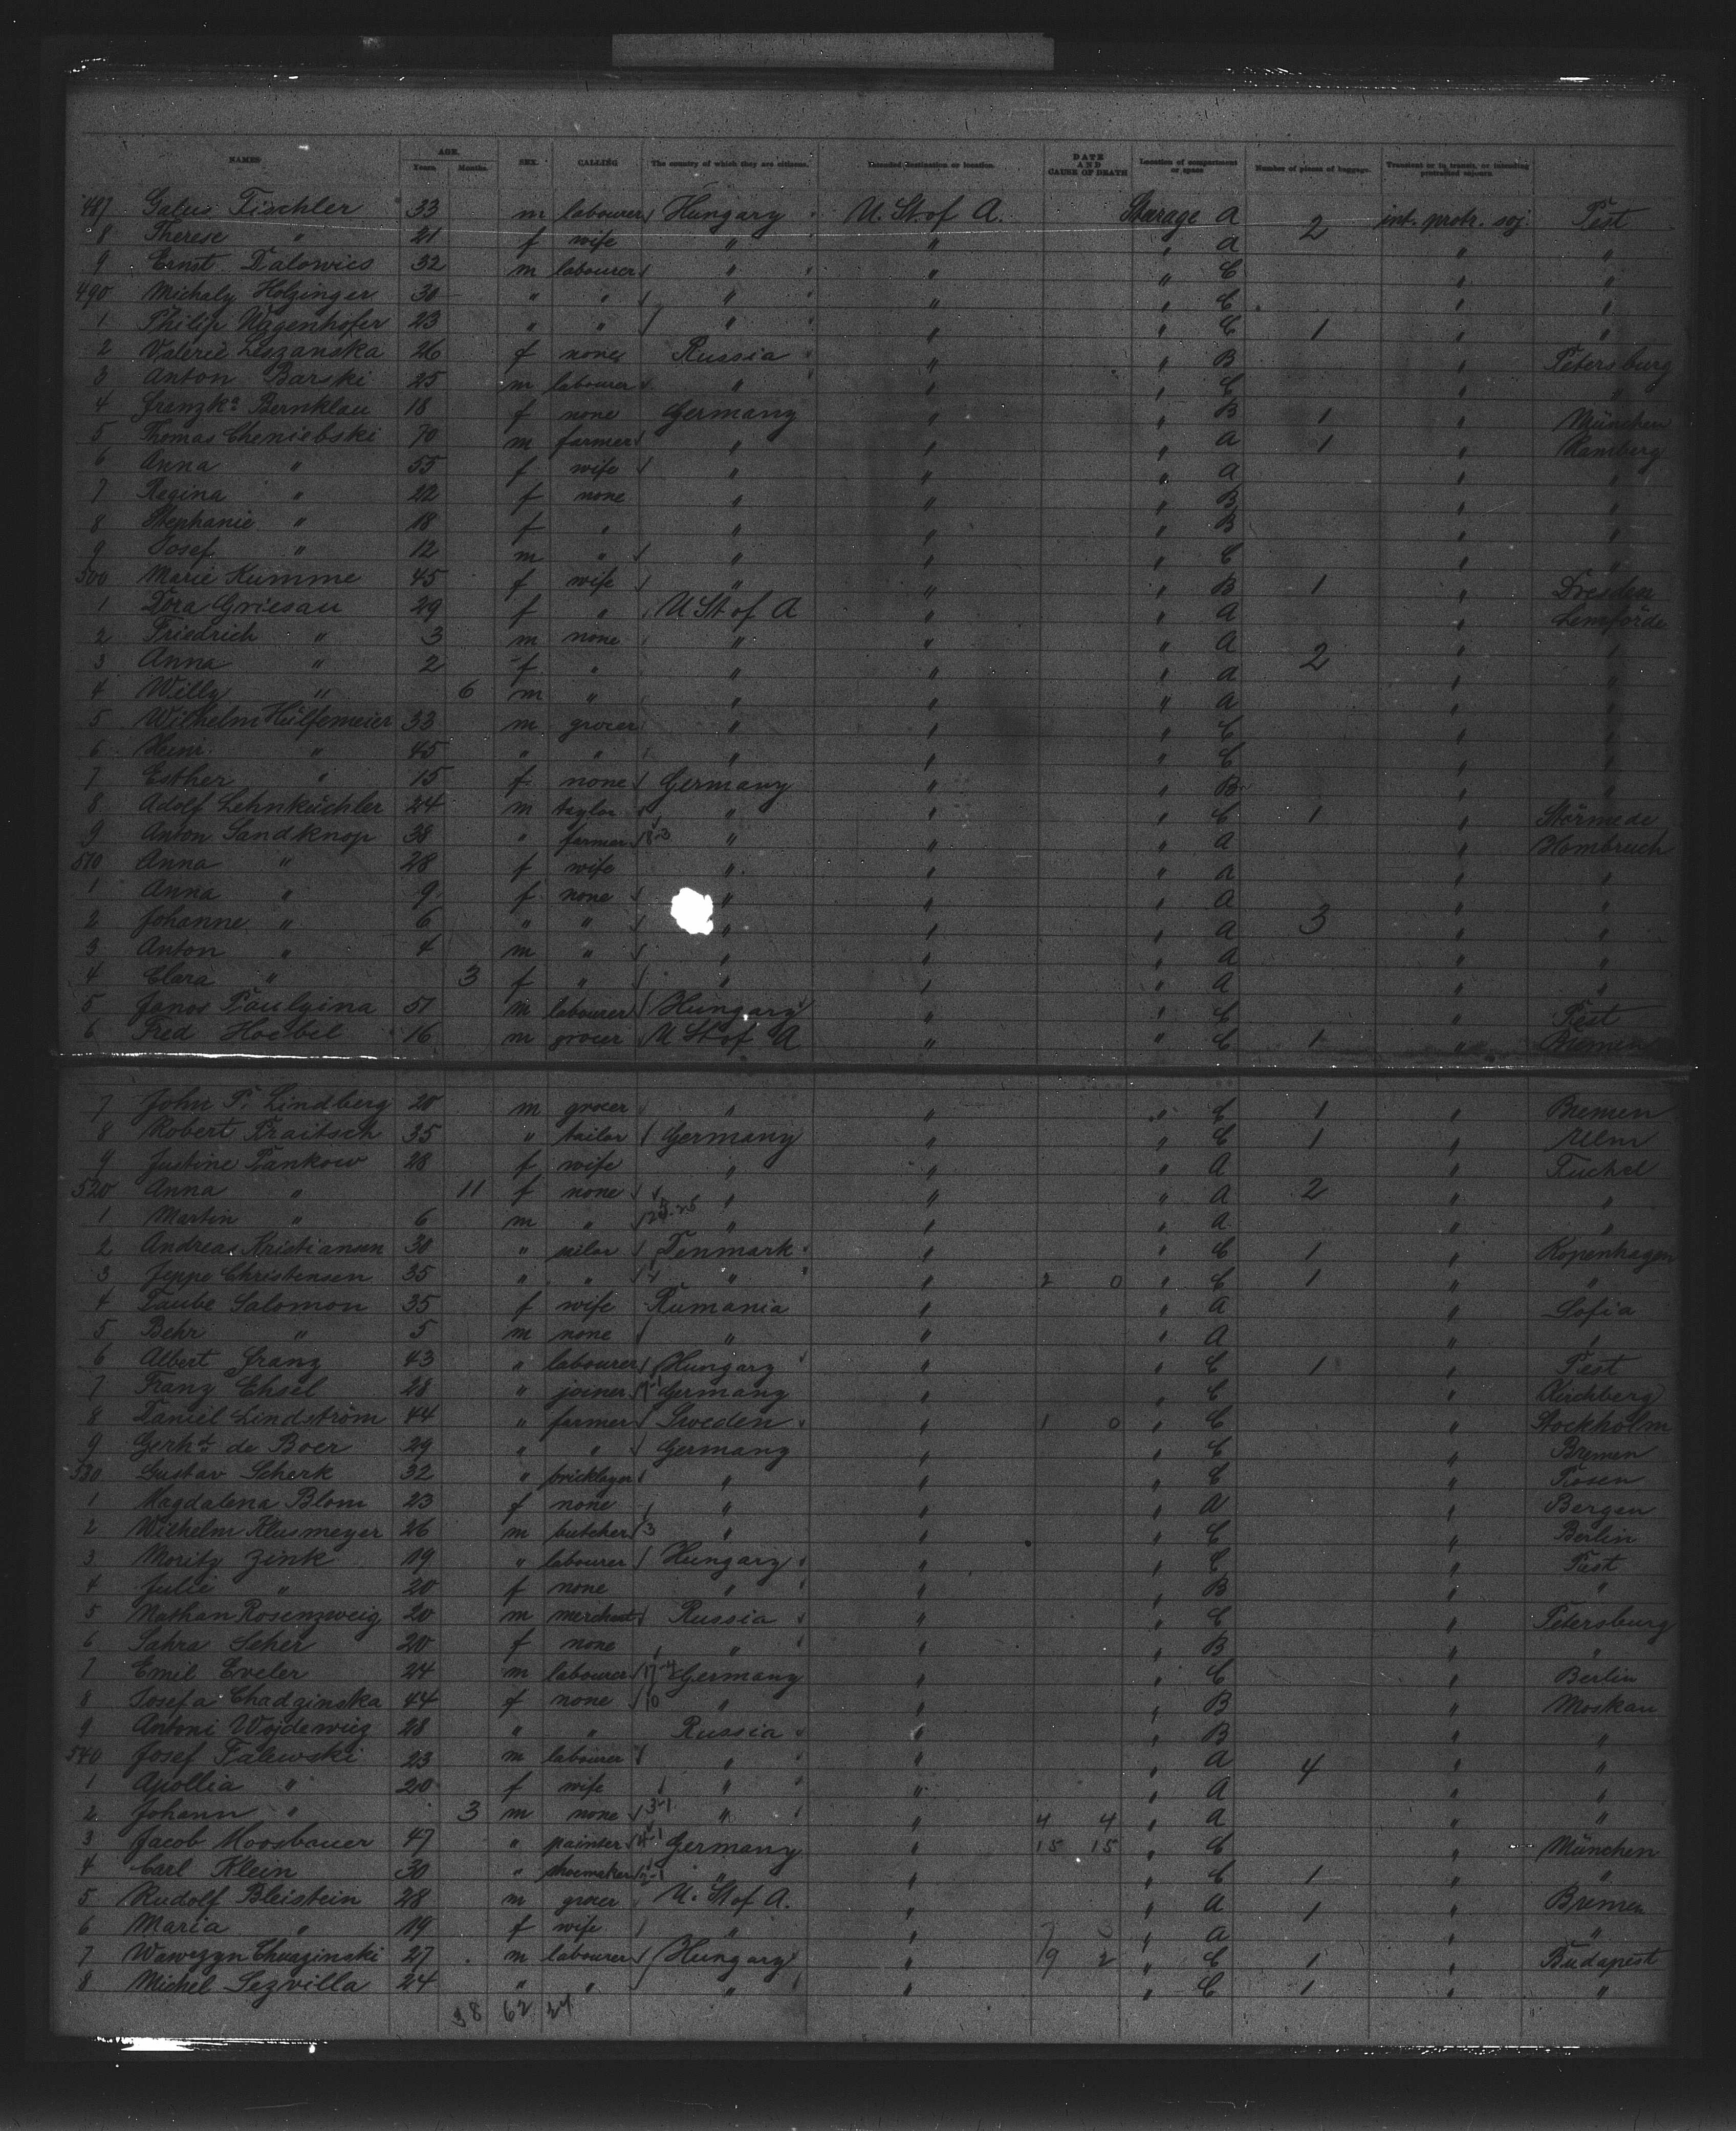 NAMES AGE. Years. Months. SEX. CALLING The country of which they are citizens. Intended destination or location. DATE AND CAUSE OF DEATH Location of compartment or space Number of pieces of baggage. Transient or in transit, or intending protracted sojourn.
487 Galus Tischler 33 m labourer Hungary U. St of A. Stearage A 2 int. protr. soj. Pest
8 Therese " 21 f wife " " " A " "
9 Ernst Dalowics 32 m labourer " " " C " "
490 Michaly Holzinger 30 " " " " " C " "
1 Philip Wagenhofer 23 " " " " " C 1 " "
2 Valerie Leszanska 26 f none Russia " " B " Petersburg
3 Anton Barski 25 m labourer " " " C " "
4 Franzka Bernklau 18 f none Germany " " B 1 " München
5 Thomas Cheniebski 70 m farmer " " " A 1 " Hamberg
6 Anna " 55 f wife " " " A " "
7 Regina " 22 f none " " " B " "
8 Stephanie " 18 f " " " " B " "
9 Josef " 12 m " " " " C " "
500 Marie Kumme 45 f wife " " " B 1 " Dresden
1 Dora Griesau 29 f " U St of A " " A " Lemförde
2 Friedrich " 3 m none " " " A 2 " "
3 Anna " 2 f " " " " A " "
4 Willy " 6 m " " " " A " "
5 Wilhelm Hülfemeier 33 m grocer " " " C " "
6 Heinr. " 45 " " " " " C " "
7 Esther " 15 f none Germany " " B " "
8 Adolf Lehnküchler 24 m taylor " " " C 1 " Störmede
9 Anton Sandknop 38 " farmer 8-3 " " " A " Hombruch
510 Anna " 28 f wife " " " A " "
1 Anna " 9 f none " " " A " "
2 Johanne " 6 " " " " " A 3 " "
3 Anton " 4 m " " " " A " "
4 Clara " 3 f " " " " A " "
5 Janos Paulyina 51 m labourer Hungary " " C " Pest
6 Fred Hoebel 16 m grocer U St of A " " C 1 " Bremen
7 John P. Lindberg 20 m grocer " " " C 1 " Bremen
8 Robert Praitsch 35 " tailor Germany " " C 1 " Ulm
9 Justine Pankow 28 f wife " " " A " Tuchel
520 Anna " 11 f none " " " A 2 " "
1 Martin " 6 m " " " " A " "
2 Andreas Kristiansen 30 " sailor Denmark " " C 1 " Kopenhagen
3 Jeppe Christensen 35 " " 4 " " 2 0 " C 1 " "
4 Taube Salomon 35 f wife Rumania " " A " Sofia
5 Behr " 5 m none " " " A " "
6 Albert Franz 43 " labourer Hungary " " C 1 " Pest
7 Franz Ehsel 28 " joiner Germany " " C " Kirchberg
8 Daniel Lindström 44 " farmer Sweden " 1 0 " C " Stockholm
9 Gerhd. de Boer 29 " " Germany " " C " Bremen
530 Gustav Schark 32 " bricklayer " " " C " Posen
1 Magdalena Blom 23 f none " " " A " Bergen
2 Wilhelm Klusmeyer 26 m butcher 3 " " " C " Berlin
3 Moritz Zink 19 " labourer Hungary " " C " Pest
4 Julie " 20 f none " " " B " "
5 Nathan Rosenzweig 20 m merchant Russia " " C " Petersburg
6 Sahra Scher 20 f none " " " B " "
7 Emil Eveler 24 m labourer 17-4 Germany " " C " Berlin
8 Josefa Chadzinska 44 f none 10 " " " B " Moskau
9 Antoni Wojdewicz 28 " " Russia " " B " "
540 Josef Falewski 23 m labourer " " " A 4 " "
1 Apollia " 20 f wife " " " A " "
2 Johann " 3 m none 3-1 " " 4 4 " A " "
3 Jacob Moosbauer 47 " painter 4-1 Germany " 15 15 " C " München
4 Carl Klein 30 " shoemaker 2-1 " " " C 1 " "
5 Rudolf Bleistein 28 m grocer U. St of A. " " A 1 " Bremen
6 Maria " 19 f wife " " " A " "
7 Wawrzyn Chuszinski 27 m labourer Hungary " 19 2 " C 1 " Budapest
8 Michel Sezvilla 24 " " " " " C 1 " "
38 62 24